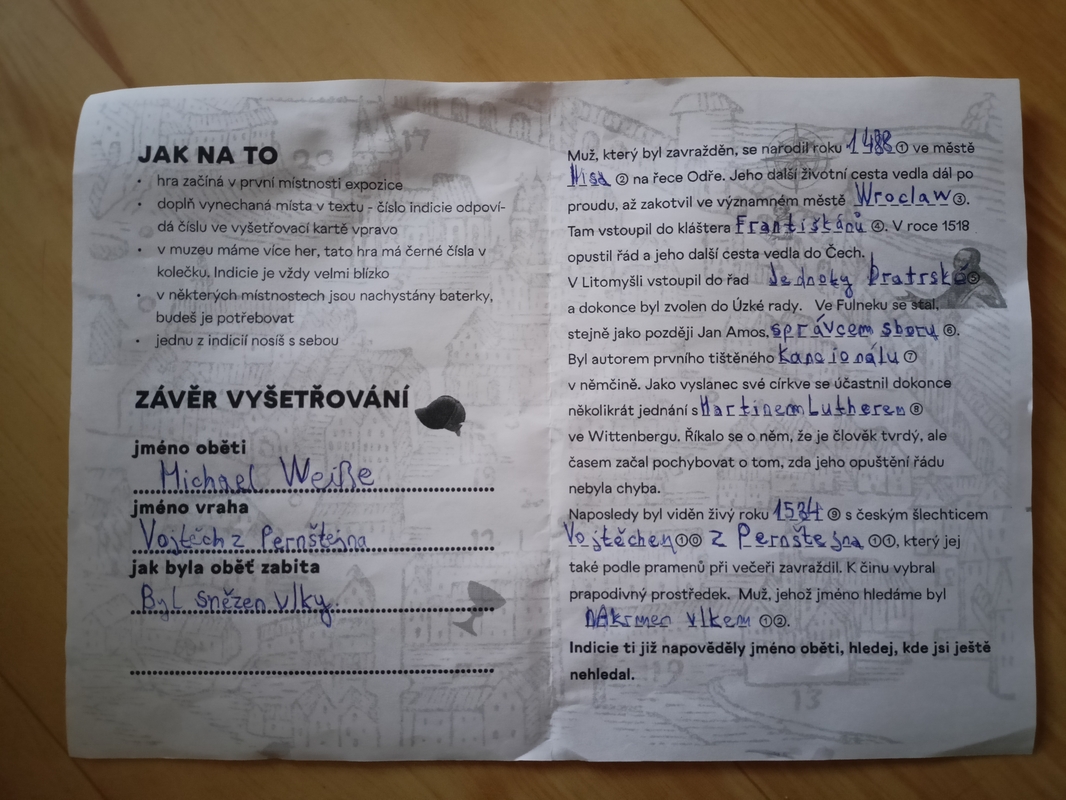 JAK NA TO
• hra začíná v první místnosti expozice
• doplň vynechaná místa v textu - číslo indicie odpoví-
dá číslu ve vyšetřovací kartě vpravo
• v muzeu máme více her, tato hra má černé čísla v
kolečku. Indicie je vždy velmi blízko
• v některých místnostech jsou nachystány baterky,
budeš je potřebovat
• jednu z indicií nosíš s sebou
ZÁVĚR VYŠETŘOVÁNÍ
jméno oběti
Michael Weiße
jméno vraha
Vojtěch z Pernštejna
jak byla oběť zabita
Byl snězen vlky.
Muž, který byl zavražděn, se narodil roku 1488 ① ve městě
Nisa ② na řece Odře. Jeho další životní cesta vedla dál po
proudu, až zakotvil ve významném městě Wroclaw ③.
Tam vstoupil do kláštera Františkánů ④. V roce 1518
opustil řád a jeho další cesta vedla do Čech.
V Litomyšli vstoupil do řad Jednoky Bratrské ⑤
a dokonce byl zvolen do Úzké rady. Ve Fulneku se stal,
stejně jako později Jan Amos, správcem sboru ⑥.
Byl autorem prvního tištěného Kancionálu ⑦
v němčině. Jako vyslanec své církve se účastnil dokonce
několikrát jednání s Martinem Lutherem ⑧
ve Wittenbergu. Říkalo se o něm, že je člověk tvrdý, ale
časem začal pochybovat o tom, zda jeho opuštění řádu
nebyla chyba.
Naposledy byl viděn živý roku 1534 ⑨ s českým šlechticem
Vojtěchem ①⓪ z Pernštejna ①①, který jej
také podle pramenů při večeři zavraždil. K činu vybral
prapodivný prostředek. Muž, jehož jméno hledáme byl
nakrmen vlkem ①②.
Indicie ti již napověděly jméno oběti, hledej, kde jsi ještě
nehledal.
17
12
13